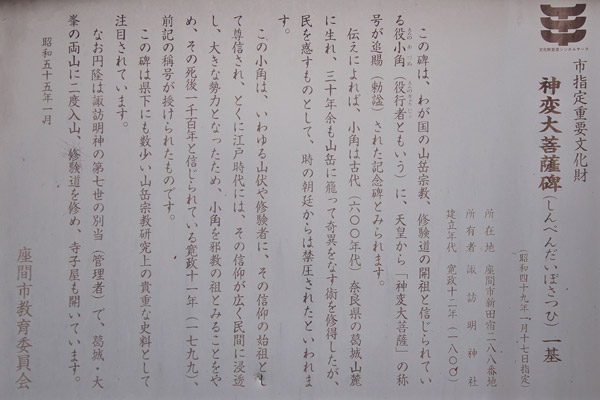 市指定重要文化財
神変大菩薩碑(しんぺんだいぼさつひ)一基
(昭和四十九年一月十七日指定)
所在地 座間市新田宿二八八番地
所有者 諏訪明神社
建立年代 寛政十二年(一八〇〇)
この碑は、わが国の山岳宗教、修験道の開祖と信じられてい
る役小角(役行者ともいう)に、天皇から「神変大菩薩」の称
号が追贈(勅諡)された記念碑とみられます。
伝えによれば、小角は古代(六〇〇年代)奈良県の葛城山麓
に生れ、三十年余も山岳に籠って奇異をなす術を修得したが、
民を惑すものとして、時の朝廷からは禁圧されたといわれま
す。
この小角は、いわゆる山伏や修験者に、その信仰の始祖とし
て尊信され、とくに江戸時代には、その信仰が広く民間に浸透
し、大きな勢力となったため、小角を邪教の祖とみることをや
め、その死後一千百年と信じられている寛政十一年(一七九九)、
前記の称号が授けられたものです。
この碑は県下にも数少い山岳宗教研究上の貴重な史料として
注目されています。
なお円隆は諏訪明神の第七世の別当(管理者)で、葛城・大
峯の両山に二度入山、修験道を修め、寺子屋も開いています。
昭和五十五年一月
座間市教育委員会